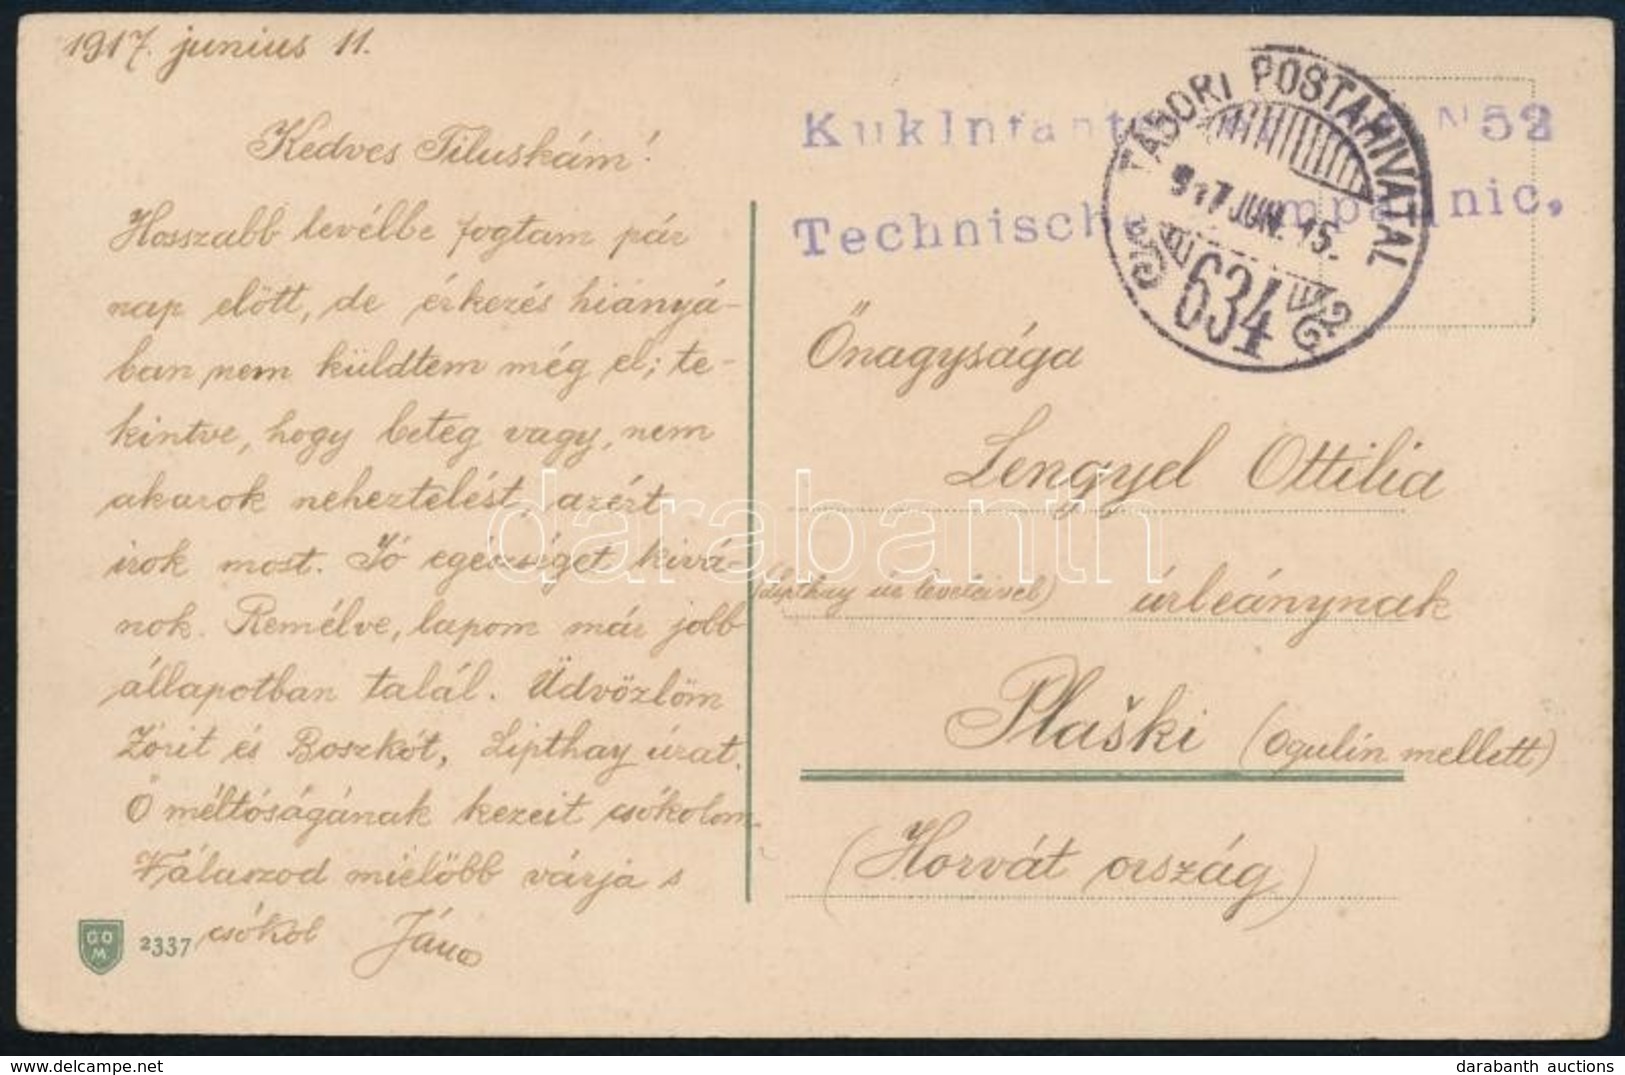 1917. junius 11.
Kedves Tiluskám!
Hosszabb levélbe fogtam pár
nap elött, de érkezés hiányá-
ban nem küldtem még el; te-
kintve, hogy beteg vagy, nem
akarok neheztelést, azért
irok most. Jó egészséget kivá-
nok. Remélve, lapom már jobb
állapotban talál. Üdvözlöm
Zórit és Boszkót, Lipthay úrat.
Ő méltóságának kezeit csókolom.
Válaszod mielöbb várja s
csókol János
GO
M
2337
KukInfant N 52
Technische ompagnic,
TÁBORI POSTAHIVATAL
917 JUN. 15.
634
Őnagysága
Lengyel Ottilia
(Lipthay úr leveleivel) úrleánynak
Plaški (Ogulin mellett)
(Horvát ország)
darabanth
darabanth auctions